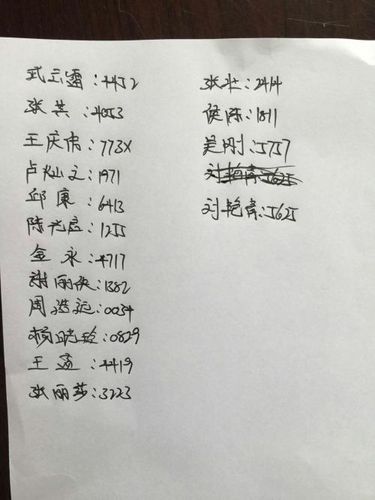 武云霄:4452
张共:4053
王庆伟:773X
卢灿文:1971
邱康:6413
陈光启:1255
金永:4717
谢丽侠:1382
周浩远:0034
杨晓玲:0829
王孟:4419
张丽莎:3223
张壮:2414
侯陈:1811
吴刚:5757
刘艳青:5625